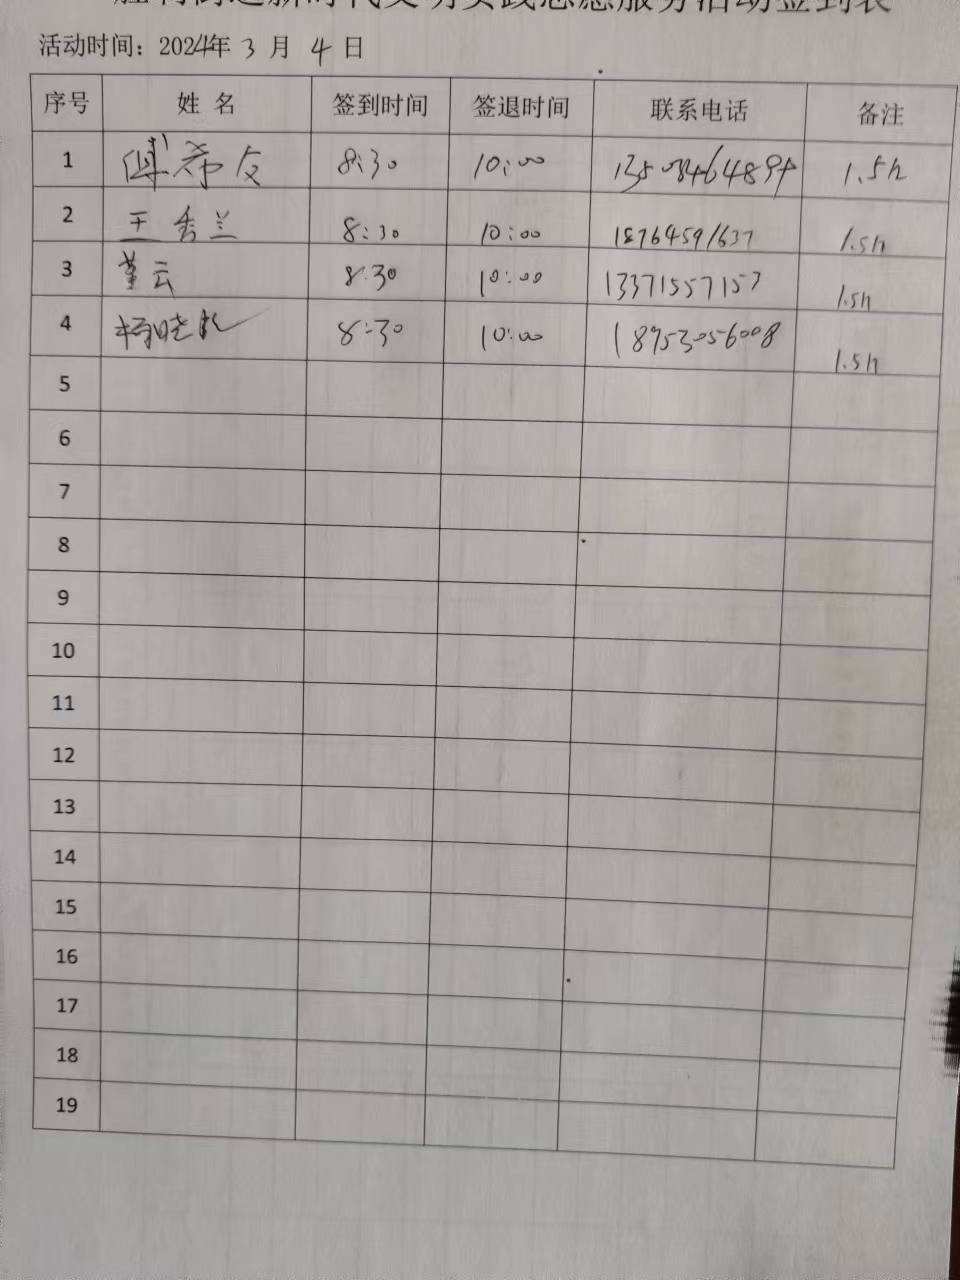 胜利街道新时代文明实践志愿服务活动签到表
活动时间：2024年 3 月 4 日
序号 姓 名 签到时间 签退时间 联系电话 备注
1 傅希友 8:30 10:00 1.5h
2 王秀兰 8:30 10:00 18764591637 1.5h
3 董云 8:30 10:00 13371557157 1.5h
4 杨晓 8:30 10:00 18953056008 1.5h
5
6
7
8
9
10
11
12
13
14
15
16
17
18
19